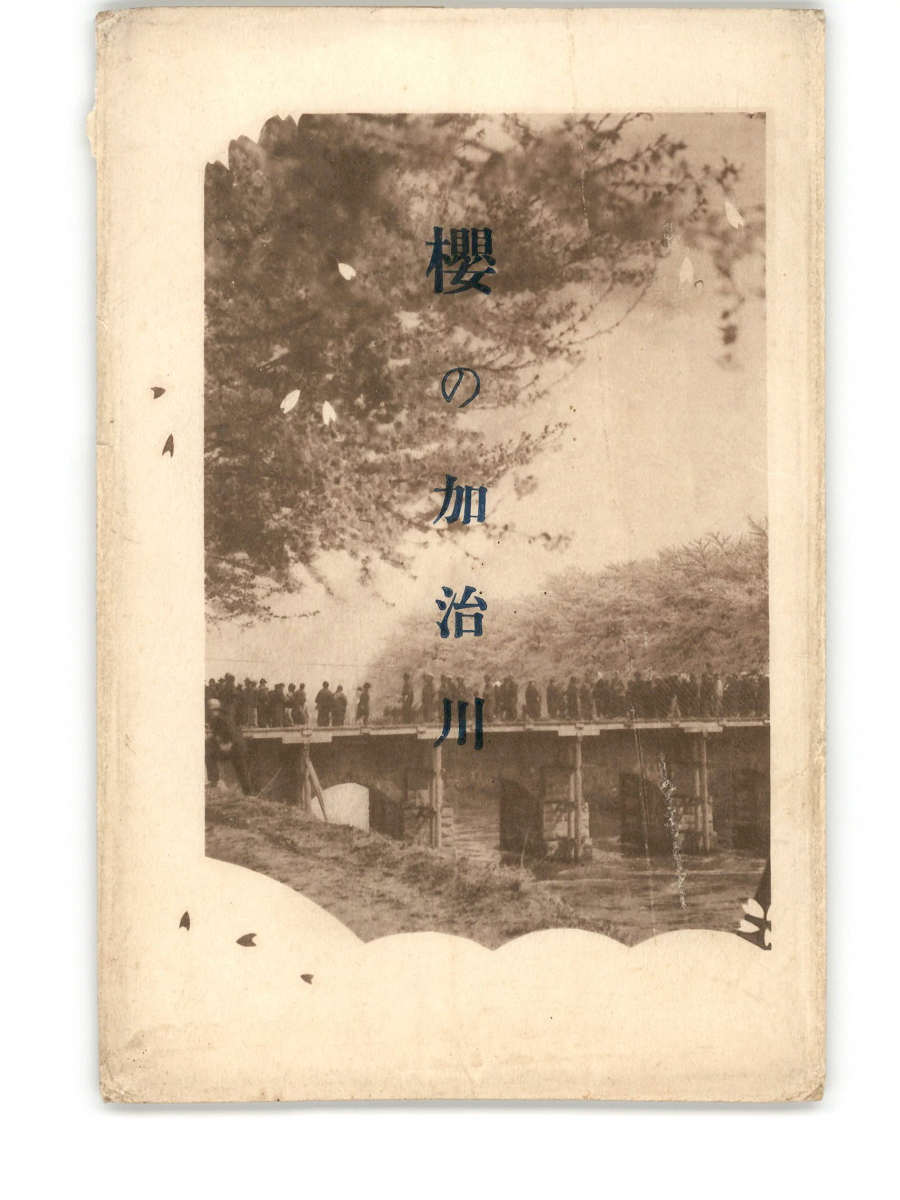 櫻の加治川